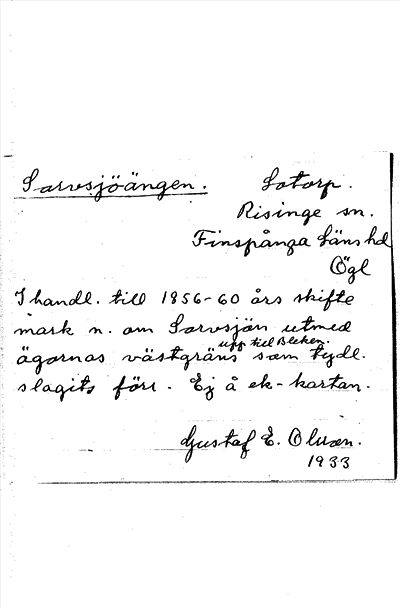 Sarvsjöängen. Sotorp.
Risinge sn.
Finspånga läns hd
Ögl
I handl. till 1856-60 års skifte
mark n. om Sarvsjön utmed
ägornas västgräns upp till Bleken. som tydl.
slagits förr. Ej å ek-kartan.
Gustaf E. Olsson.
1933